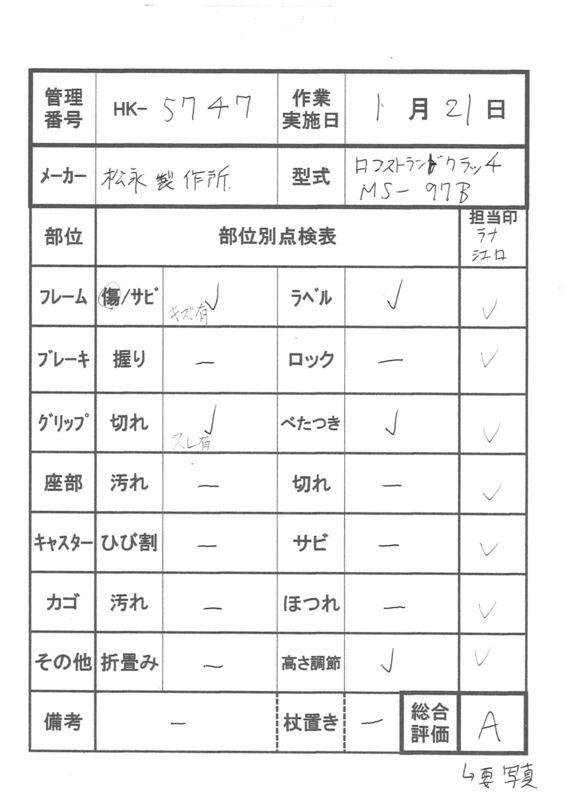 管理番号 HK- 5747 作業実施日 1月21日
メーカー 松永製作所 型式 ロフストランドクラッチ MS-97B
部位 部位別点検表 担当印 ラナ 江口
フレーム 傷/サビ ✓ キズ有 ラベル ✓ ✓
ブレーキ 握り － ロック － ✓
グリップ 切れ ✓ スレ有 べたつき ✓ ✓
座部 汚れ － 切れ － ✓
キャスター ひび割 － サビ － ✓
カゴ 汚れ － ほつれ － ✓
その他 折畳み － 高さ調節 ✓ ✓
備考 － 杖置き － 総合評価 A
↳要写真